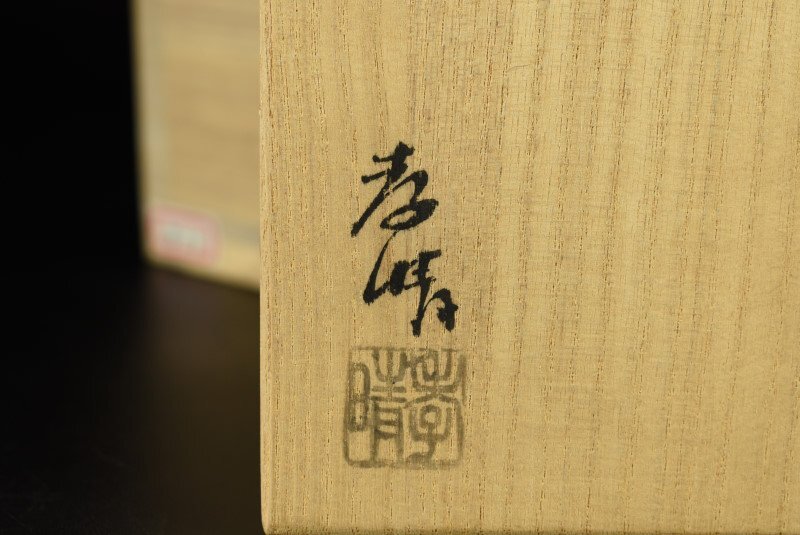 孝晴
孝晴